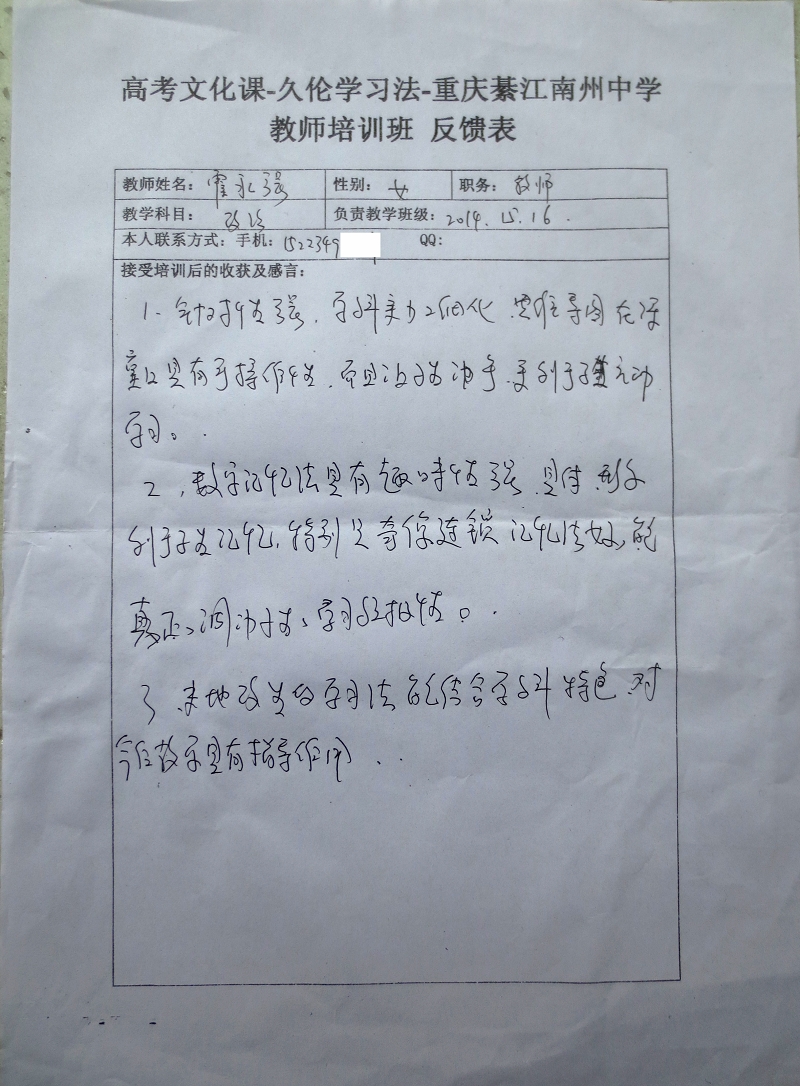 高考文化课-久伦学习法-重庆綦江南州中学
教师培训班 反馈表
教师姓名：霍永强 性别：女 职务：教师
教学科目：政治 负责教学班级：2014.15.16.
本人联系方式：手机：1522349 QQ：
接受培训后的收获及感言：
1. 针对性强，学科 思维导图在课
堂上具有可操作性，而且让学生动手，更利于 主动
学习。
2，数字记忆法具有趣味性强，具体形象
利于学生记忆，特别是奇像连锁记忆法好，能
真正、调动学生、学习积极性。
3 学习法能结合学科特色 对
今后教学具有指导作用．